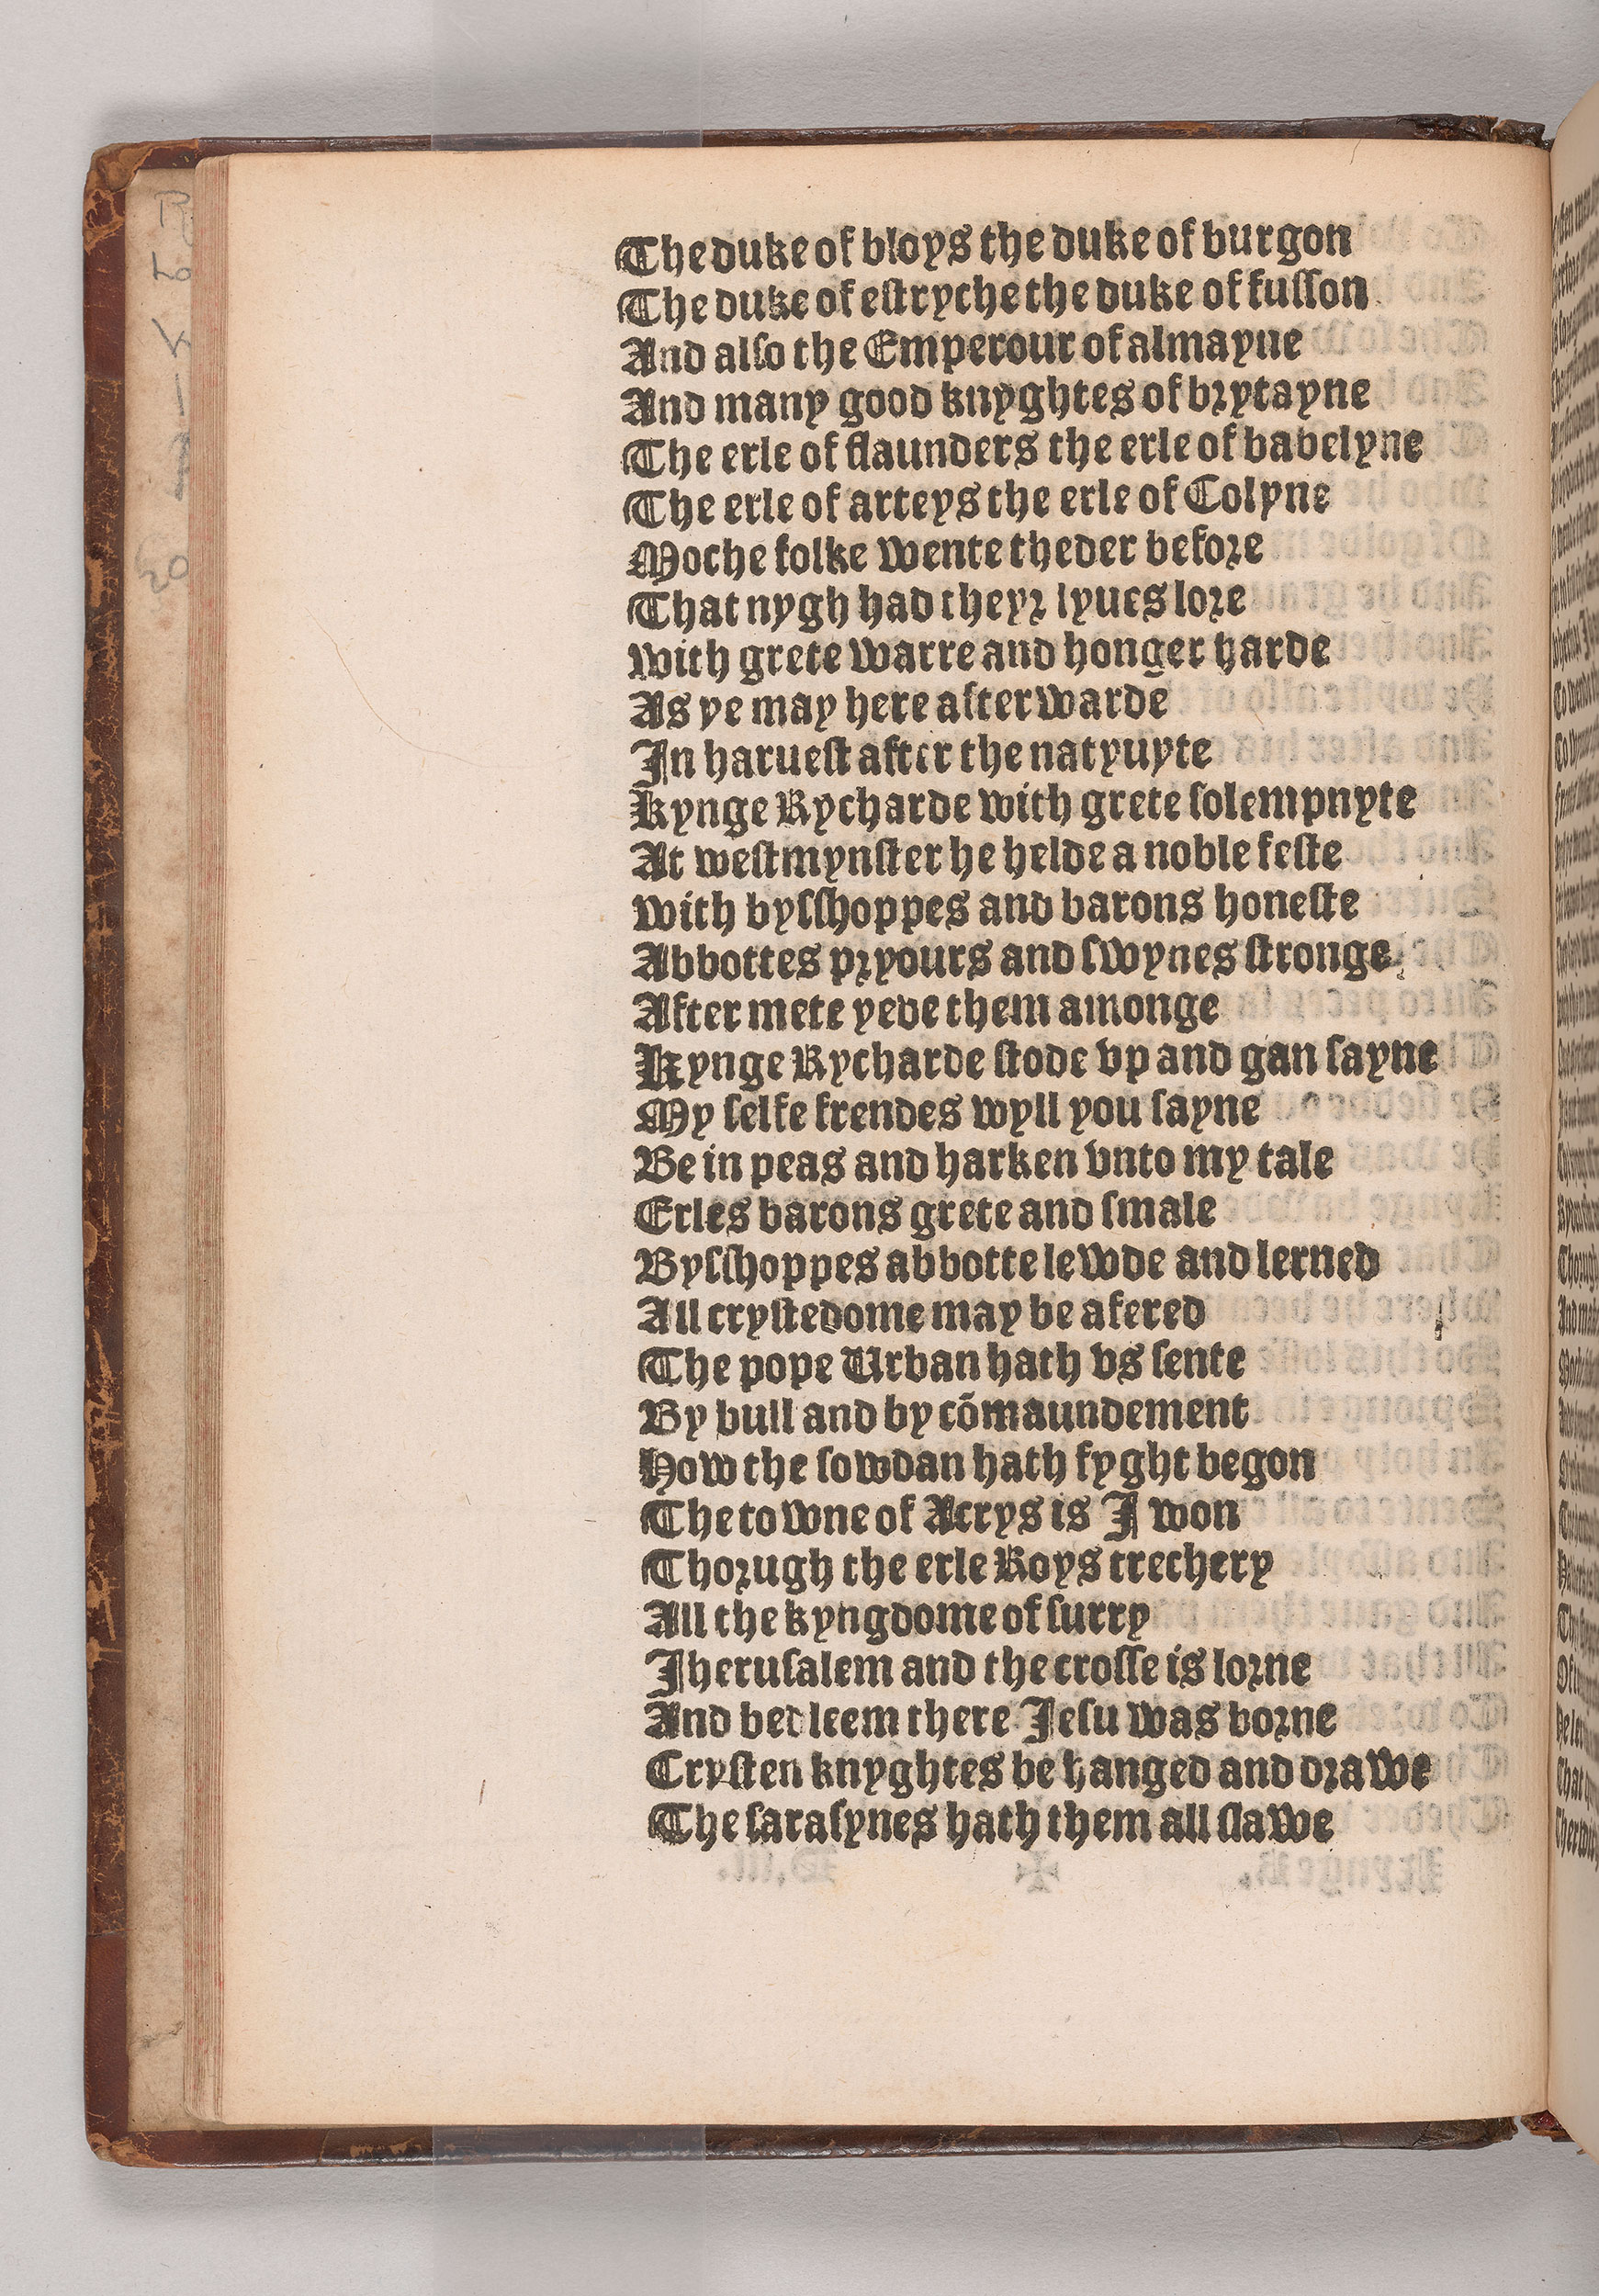 The duke of bloys the duke of burgon
The duke of estryche the duke of fusson
And also the Emperour of almayne
And many good knyghtes of brytayne
The erle of flaunders the erle of babelyne
The erle of arteys the erle of Colyne
Moche folke wente theder before
That nygh had theyr lyues lore
With grete warre and honger harde
As ye may here afterwarde
In haruest after the natyuyte
Kynge Rycharde with grete solempnyte
At westmynster he helde a noble feste
With bysshoppes and barons honeste
Abbottes pryours and swynes stronge
After mete yede them amonge
Kynge Rycharde stode vp and gan sayne
My selfe frendes wyll you sayne
Be in peas and harken vnto my tale
Erles barons grete and smale
Bysshoppes abbotte lewde and lerned
All crystedome may be afered
The pope Urban hath vs sente
By bull and by cōmaundement
How the sowdan hath fyght begon
The towne of Acrys is I won
Thorugh the erle Roys trechery
All the kyngdome of surry
Jherusalem and the crosse is lorne
And bedleem there Jesu was borne
Crysten knyghtes be hanged and drawe
The sarasynes hath them all slawe